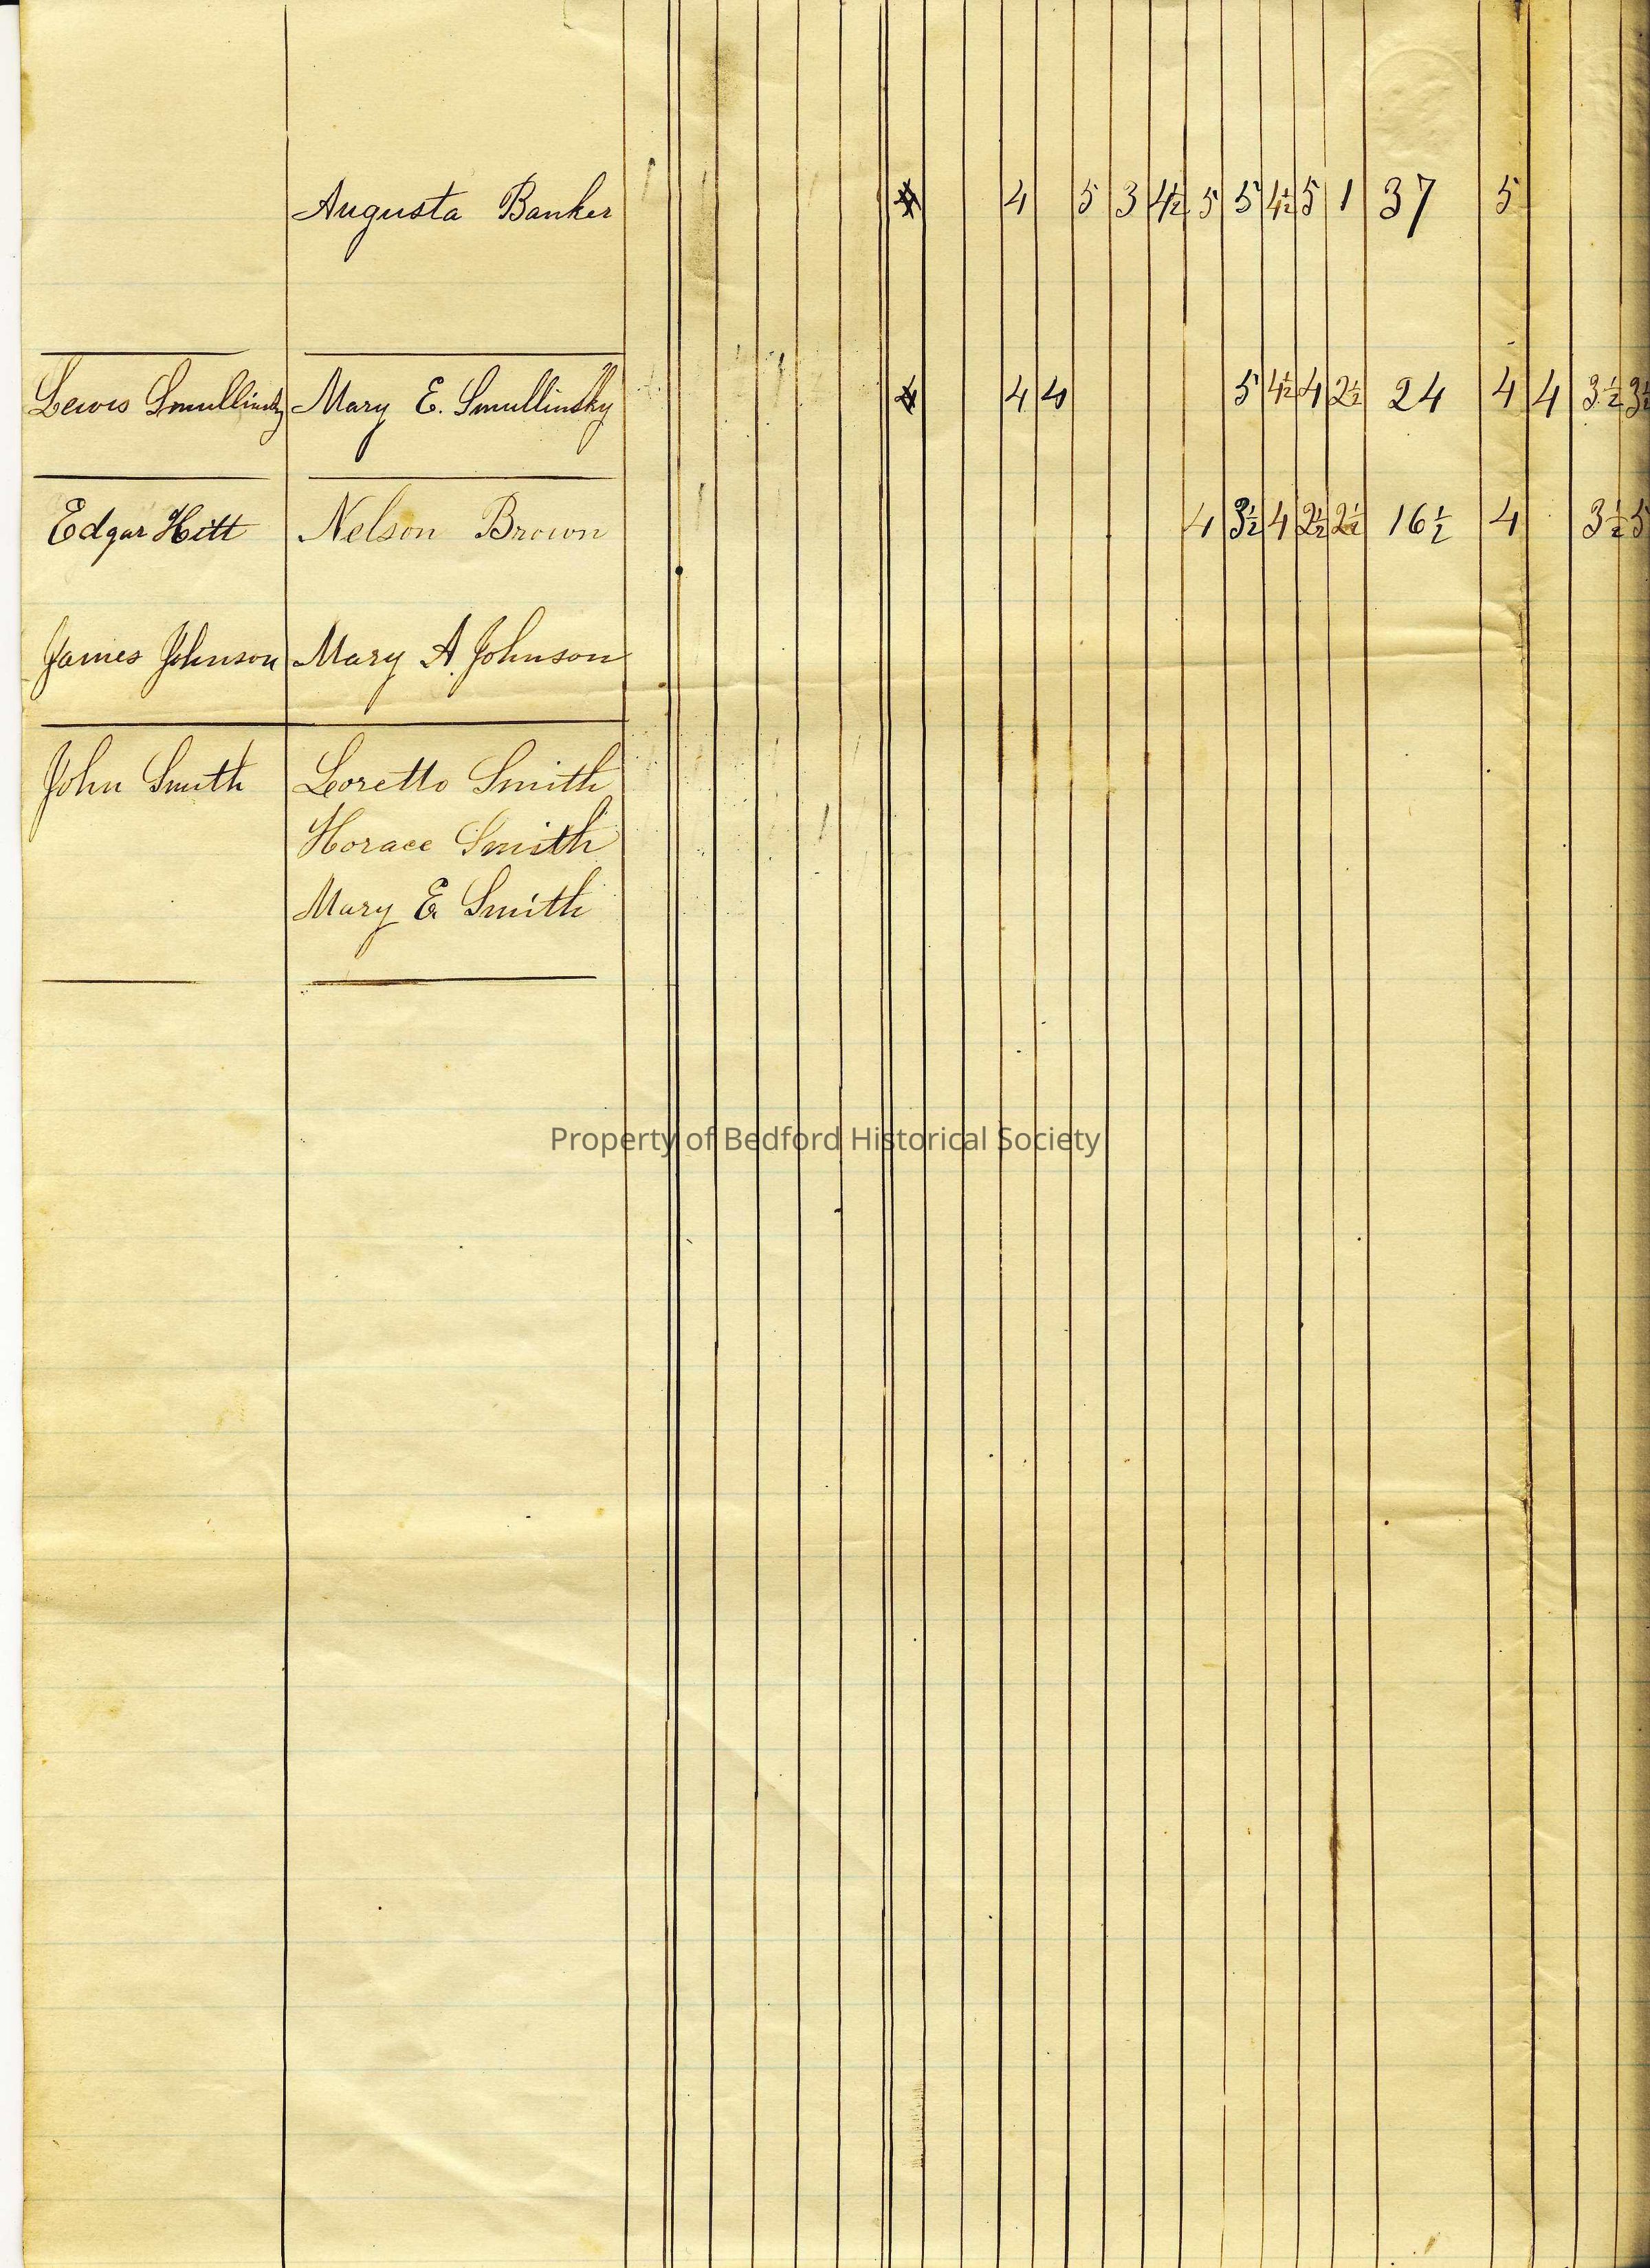 Augusta Banker 4 5 3 4½ 5 5 4½ 5 1 37 5
Lewis Smullinsky Mary E. Smullinsky 4 4 5 4½ 4 2½ 24 4 4 3½ 3½
Edgar Hitt Nelson Brown 4 3½ 4 2½ 2½ 16½ 4 3½ 5
James Johnson Mary A. Johnson
John Smith Loretto Smith
Horace Smith
Mary E. Smith
Property of Bedford Historical Society